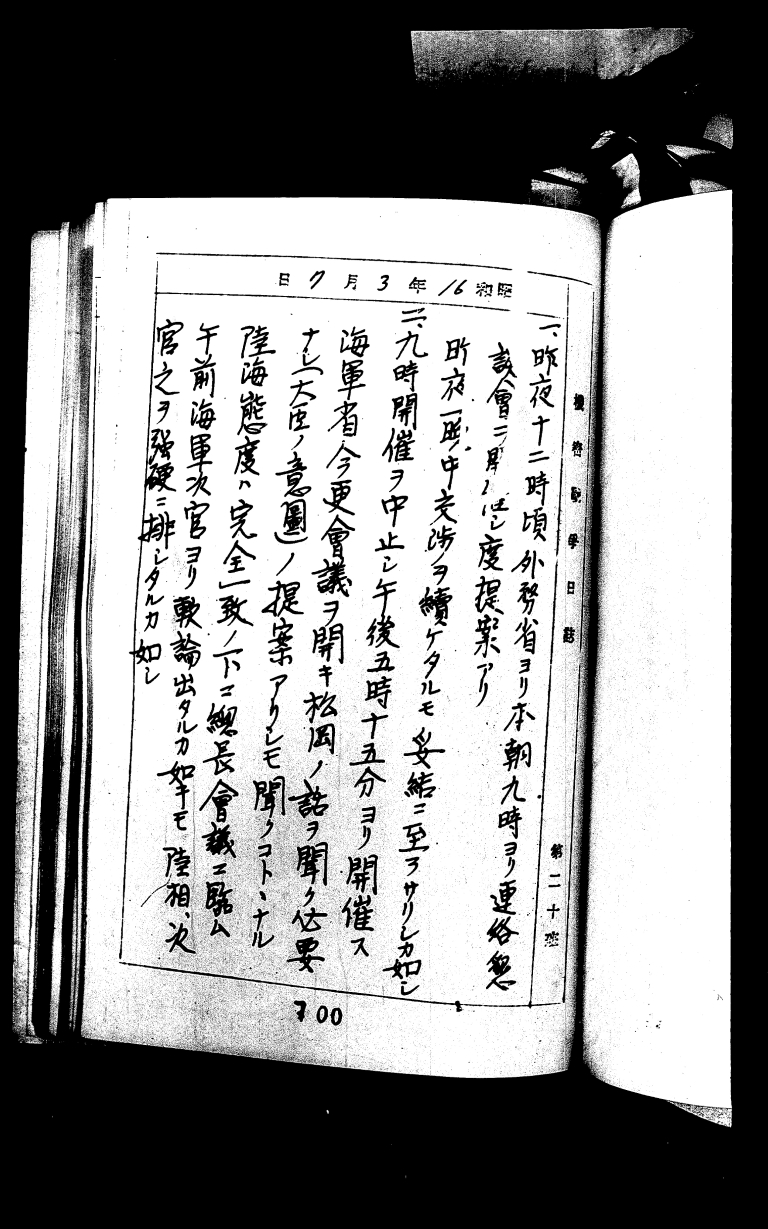 機密戰爭日誌
第二十班
昭和16年3月7日
一、昨夜十二時頃外務省ヨリ本朝九時ヨリ連絡懇
談會ニ度提案アリ
昨夜一晩中交渉ヲ續ケタルモ妥結ニ至ラサリシカ如シ
二、九時開催ヲ中止シ午後五時十五分ヨリ開催ス
海軍省今更會議ヲ開キ松岡ノ話ヲ聞ク必要
ナシ(大臣ノ意圖)ノ提案アリシモ聞クコトヽナル
陸海態度ハ完全一致ノ下ニ總長會議ニ臨ム
午前海軍次官ヨリ軟論出タルカ如キモ陸相、次
官之ヲ強硬ニ排シタルカ如シ
700